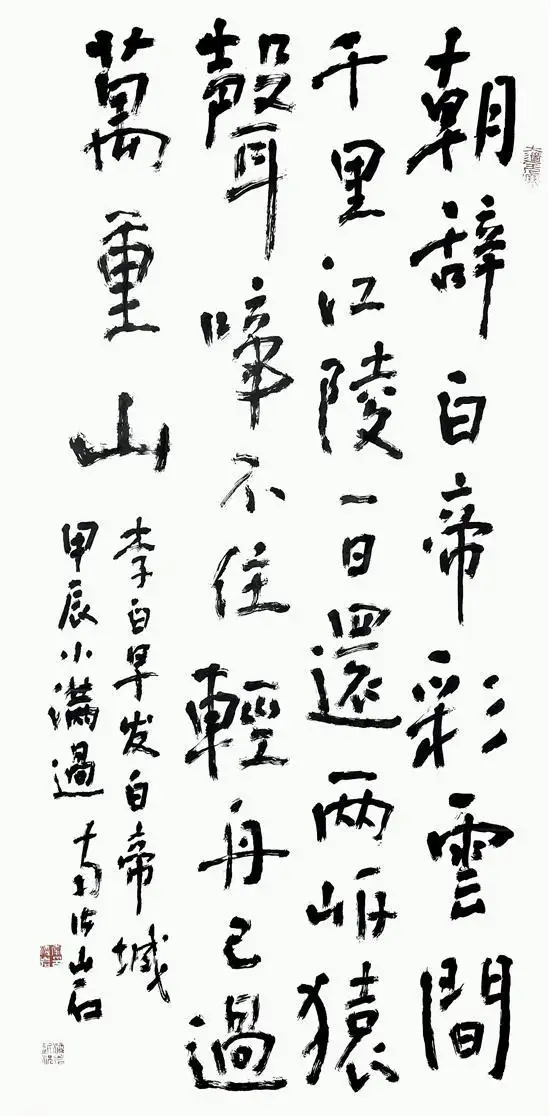 朝辞白帝彩雲間
千里江陵一日還兩岍猿
聲啼不住輕舟已過
萬重山
李白早发白帝城
甲辰小滿過
山石